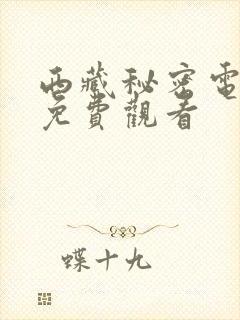 西藏秘密電
免費觀看
蝶十九